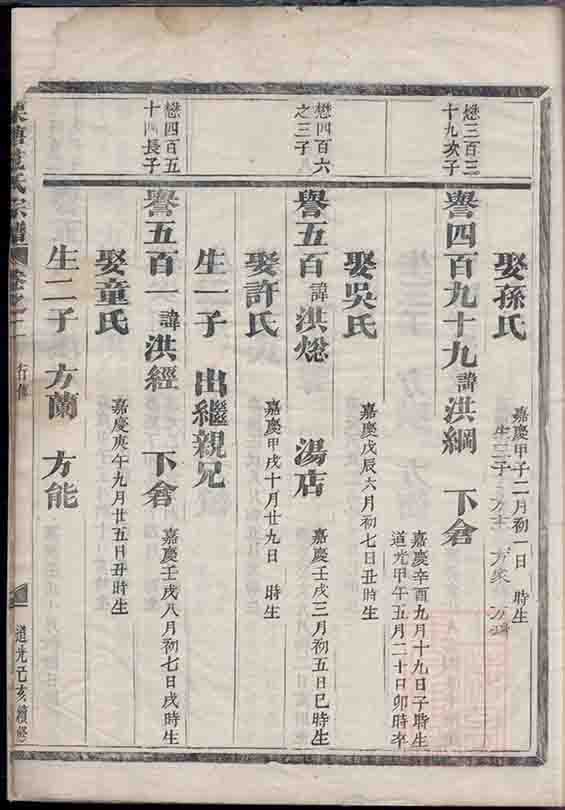 娶孫氏
嘉慶甲子二月初一日 時生
生三子
懋三百三
十九次子
譽四百九十九諱洪綱 下倉
嘉慶辛酉九月十九日子時生
道光甲午五月二十日卯時卒
娶吳氏
嘉慶戊辰六月初七日丑時生
懋四百六
之三子
譽五百諱洪㷓 湯店
嘉慶壬戌三月初五日巳時生
娶許氏
嘉慶甲戌十月廿九日 時生
生一子 出繼親兄
懋四百五
十四長子
譽五百一諱洪經 下倉
嘉慶壬戌八月初七日戌時生
娶童氏
嘉慶庚午九月廿五日丑時生
生二子 方蘭 方能
氏宗譜 卷之二 行傳 道光己亥續修